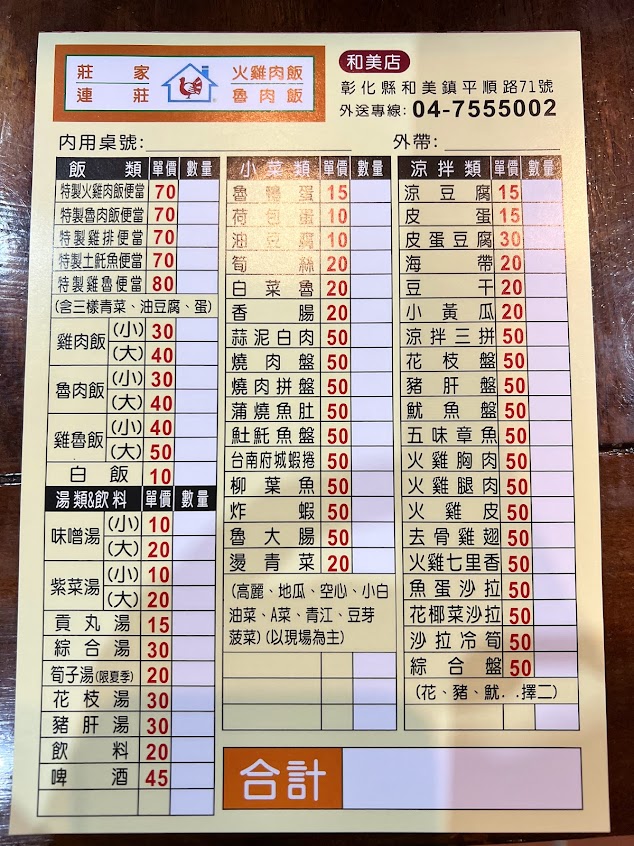 莊家 火雞肉飯
連莊 魯肉飯
和美店
彰化縣和美鎮平順路71號
外送專線: 04-7555002
內用桌號:
外帶:
飯類 單價 數量
特製火雞肉飯便當 70
特製魯肉飯便當 70
特製雞排便當 70
特製土魠魚便當 70
特製雞魯便當 80
(含三樣青菜、油豆腐、蛋)
雞肉飯 (小) 30
(大) 40
魯肉飯 (小) 30
(大) 40
雞魯飯 (小) 40
(大) 50
白飯 10
湯類&飲料 單價 數量
味噌湯 (小) 10
(大) 20
紫菜湯 (小) 10
(大) 20
貢丸湯 15
綜合湯 30
筍子湯(限夏季) 20
花枝湯 30
豬肝湯 30
飲料 20
啤酒 45
小菜類 單價 數量
魯鴨蛋 15
荷包蛋 10
油豆腐 10
筍絲 20
白菜魯 20
香腸 20
蒜泥白肉 50
燒肉盤 50
燒肉拼盤 50
蒲燒魚肚 50
魠魠魚盤 50
台南府城蝦捲 50
柳葉魚 50
炸蝦 50
魯大腸 50
燙青菜 20
(高麗、地瓜、空心、小白
油菜、A菜、青江、豆芽
菠菜)(以現場為主)
涼拌類 單價 數量
涼豆腐 15
皮蛋 15
皮蛋豆腐 30
海帶 20
豆干 20
小黃瓜 20
涼拌三拼 50
花枝盤 50
豬肝盤 50
魷魚盤 50
五味章魚 50
火雞胸肉 50
火雞腿肉 50
火雞皮 50
去骨雞翅 50
火雞七里香 50
魚蛋沙拉 50
花椰菜沙拉 50
沙拉冷筍 50
綜合盤 50
(花、豬、魷..擇二)
合計